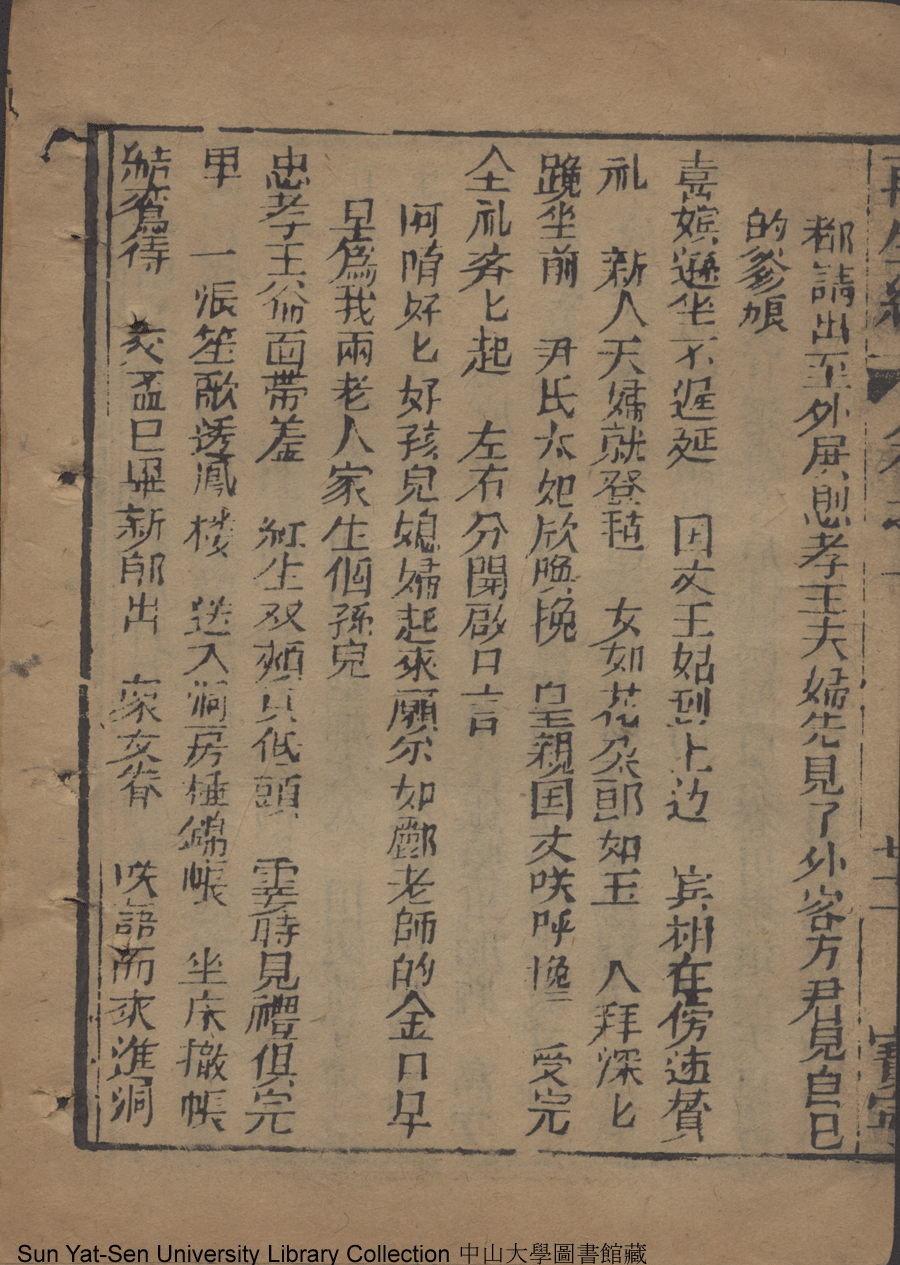 再生緣 卷之十 廿一 寶寧
都請出至外屏忠孝王夫婦先見了外客方君見自巳
的爹娘
嘉嬪遜坐不遲延 国丈王姑到上边 宾相在傍速賛
礼 新人夫婦就登毡 女如花朶郎如玉 入拜深匕
跪坐前 尹氏太妃欣喚挽 皇親国丈咲呼挽 受完
全礼齐匕起 左右分開啟口言
阿隋好匕好孩兒媳婦起來願尔如酈老師的金口早
早為我兩老人家生個孫兒
忠孝王爺面帶羞 紅生双頰只低頭 霎時見禮俱完
甲 一派笙歌透鳳楼 送入洞房極錦帳 坐床撤帳
結鴛待 交盃已畢新郎出 衆女眷 咲語而來進洞
Sun Yat-Sen University Library Collection 中山大學圖書館藏